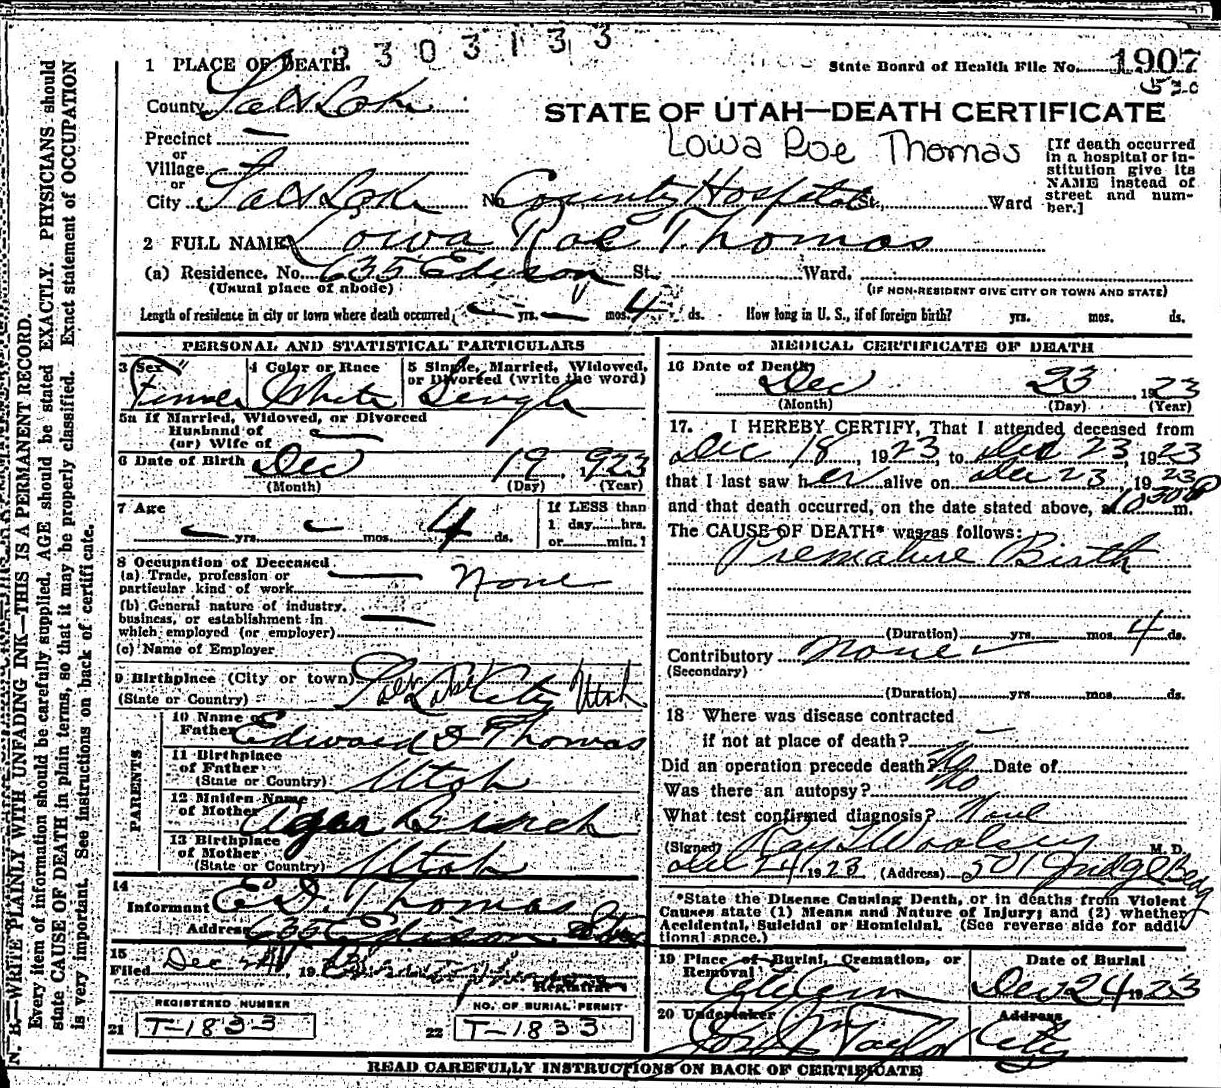 2303133
1907
State Board of Health File No.
1 PLACE OF DEATH.
County Salt Lake
STATE OF UTAH—DEATH CERTIFICATE
Precinct —
Lowa Roe Thomas
or
Village
or
City Salt Lake No County Hospital St. Ward
[If death occurred
in a hospital or in-
stitution give its
NAME instead of
street and num-
ber.]
2 FULL NAME Lowa Roe Thomas
(a) Residence. No. 635 Edison St. Ward.
(Usual place of abode)
(IF NON-RESIDENT GIVE CITY OR TOWN AND STATE)
Length of residence in city or town where death occurred — yrs. — mos. 4 ds. How long in U. S., if of foreign birth? yrs. mos. ds.
PERSONAL AND STATISTICAL PARTICULARS
3 Sex
4 Color or Race White
5 Single, Married, Widowed,
or Divorced (write the word)
Single
5a If Married, Widowed, or Divorced
Husband of
(or) Wife of —
6 Date of Birth Dec 19, 1923
(Month) (Day) (Year)
7 Age — yrs. — mos. 4 ds.
If LESS than
1 day......hrs.
or......min.?
8 Occupation of Deceased
(a) Trade, profession or
particular kind of work — None
(b) General nature of industry,
business, or establishment in
which employed (or employer) —
(c) Name of Employer
9 Birthplace (City or town) Salt Lake City Utah
(State or Country)
PARENTS
10 Name of
Father Edward D Thomas
11 Birthplace
of Father Utah
(State or Country)
12 Maiden Name
of Mother Burch
13 Birthplace
of Mother Utah
(State or Country)
14
Informant E. D. Thomas
Address 635 Edison
15
Filed Dec 192
Registrar
REGISTERED NUMBER
21 T-1833
NO. OF BURIAL PERMIT
22 T-1833
MEDICAL CERTIFICATE OF DEATH
16 Date of Death
Dec 23, 1923
(Month) (Day) (Year)
17. I HEREBY CERTIFY, That I attended deceased from
Dec 18, 1923, to Dec 23, 1923
that I last saw her alive on Dec 23, 1923
and that death occurred, on the date stated above, at 10 30 P m.
The CAUSE OF DEATH* was as follows:
Premature Birth
(Duration) yrs. mos. 4 ds.
Contributory None
(Secondary)
(Duration) yrs. mos. ds.
18 Where was disease contracted
if not at place of death? —
Did an operation precede death? No Date of
Was there an autopsy? No
What test confirmed diagnosis?
(Signed) Ray T Woolsey M. D.
Dec 24, 1923 (Address) 501 Judge Bldg
*State the Disease Causing Death, or in deaths from Violent
Causes state (1) Means and Nature of Injury; and (2) whether
Accidental, Suicidal or Homicidal. (See reverse side for addi-
tional space.)
19 Place of Burial, Cremation, or
Removal City Cem
Date of Burial
Dec 24 1923
20 Undertaker
Taylor
Address
City
READ CAREFULLY INSTRUCTIONS ON BACK OF CERTIFICATE
N. B.—WRITE PLAINLY WITH UNFADING INK—THIS IS A PERMANENT RECORD.
Every item of information should be carefully supplied. AGE should be stated EXACTLY. PHYSICIANS should
state CAUSE OF DEATH in plain terms, so that it may be properly classified. Exact statement of OCCUPATION
is very important. See instructions on back of certificate.